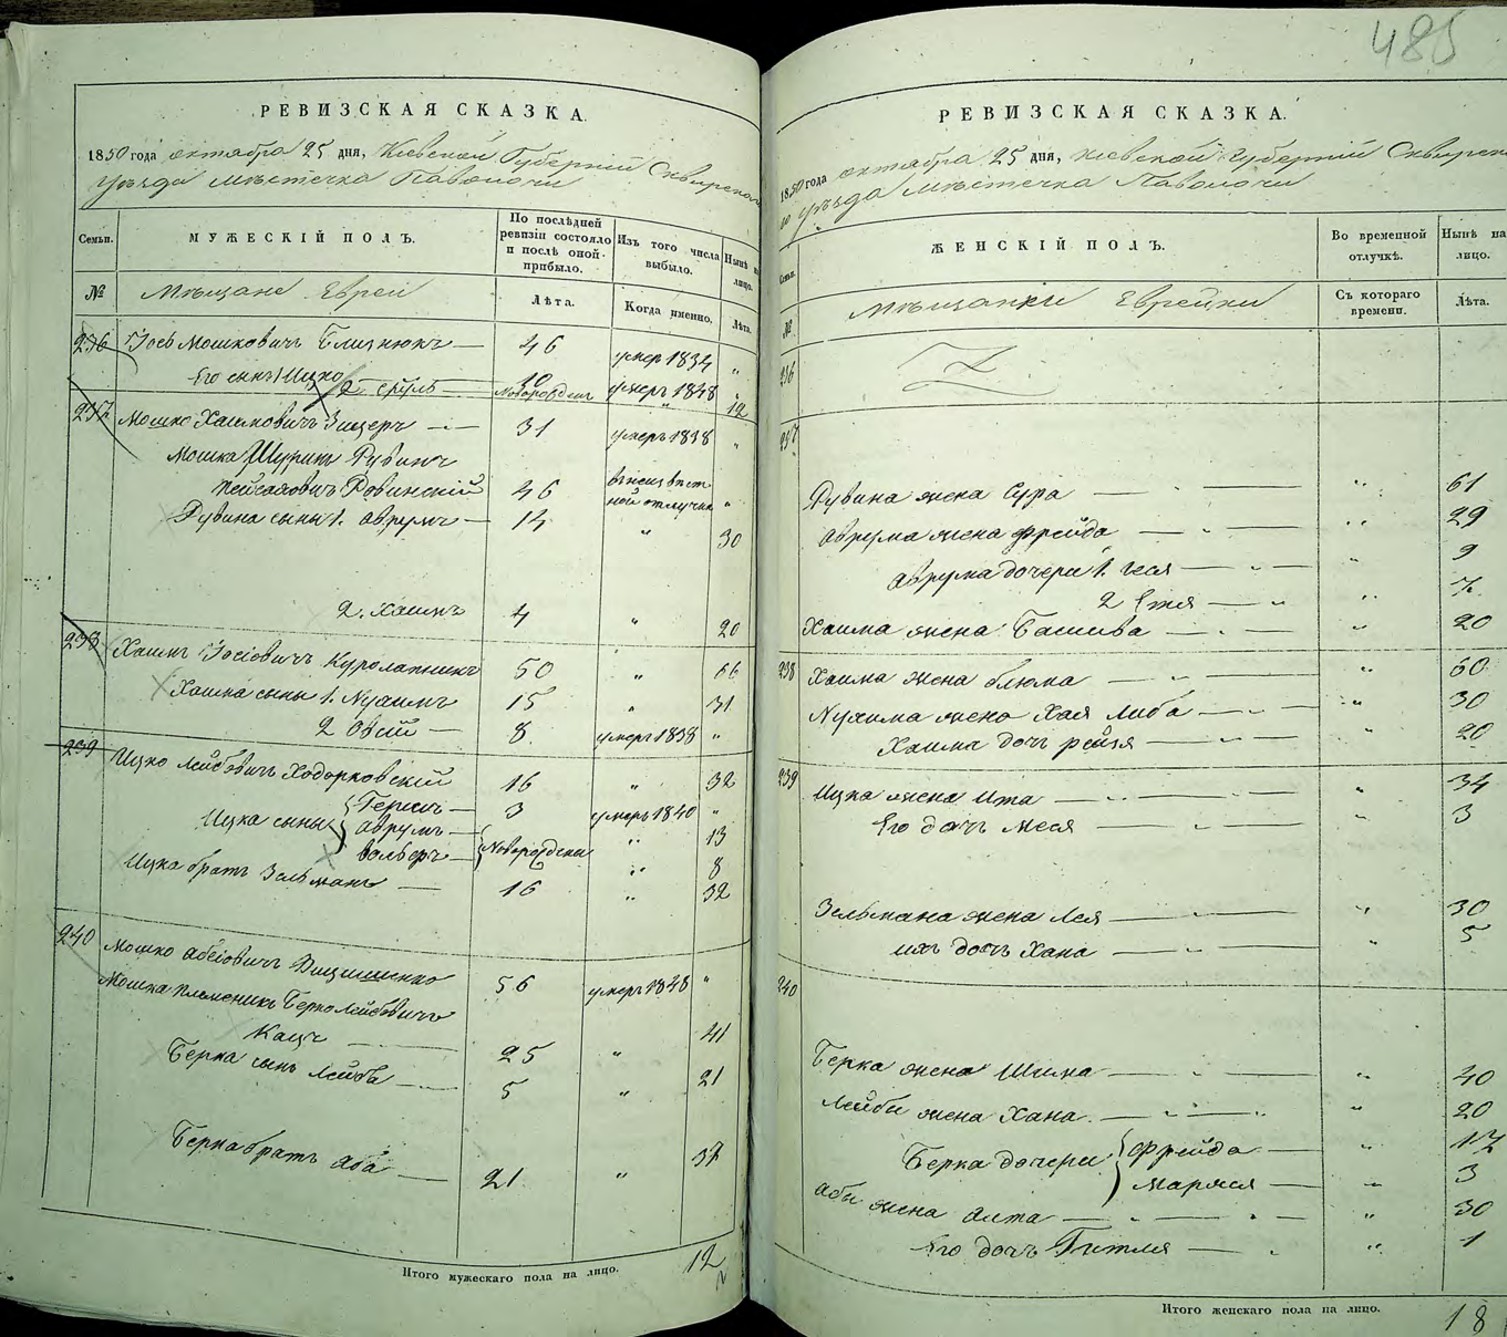 РЕВИЗСКАЯ СКАЗКА.
1850 года октабра 25 дня, Кіевской Губерній Сквирскаго
уѣзда мѣстечка Паволочи
Семьи.
МУЖЕСКІЙ ПОЛЪ.
По послѣдней ревизіи состояло и послѣ оной прибыло.
Изъ того числа выбыло.
Нынѣ на лицо.
№
Мѣщане Евреи
Лѣта.
Когда именно.
Лѣта.
236 Іось Мошковичъ Близнюкъ — 46 умер 1834 "
Его сынъ 1 Ицко — 10 умеръ 1848 "
2 Сруль — Новорожден " 12
237 Мошко Хаимовичъ Зицеръ — 31 умеръ 1838 "
Мошка Шуринъ Рувинъ
Пейсаховичъ Ровинскій 46 въ неизвѣстной отлучке "
Рувина сыны 1. Аврумъ — 14 " 30
2. Хаимъ 4 " 20
238 Хаимъ Іосіовичъ Куролапникъ 50 " 66
Хаима сыны 1. Нухимъ 15 " 31
2 Овсій — 8 умеръ 1838 "
239 Ицко Лейбовичъ Ходорковскій 16 " 32
Ицка сыны Гершъ — 3 умеръ 1840 "
Аврумъ — Новорождени " 13
Вольфъ — " 8
Ицка братъ Зельманъ — 16 " 32
240 Мошко Абеіовичъ 56 умеръ 1848 "
Мошка племеникъ Берко Лейбовичъ
Кацъ — 25 " 41
Берка сынъ Лейба — 5 " 21
Берка братъ Аба — 21 " 37
Итого мужескаго пола на лицо. 12
485
РЕВИЗСКАЯ СКАЗКА.
1850 года октабра 25 дня, Кіевской Губерній Сквирска
го уѣзда мѣстечка Паволочи
Семьи.
ЖЕНСКІЙ ПОЛЪ.
Во временной отлучкѣ.
Нынѣ на лицо.
№
Мѣщанки Еврейки
Съ котораго времени.
Лѣта.
236
237
Рувина жена Сура — " 61
Аврума жена Фрейда — " 29
Аврума дочери 1. Геся — " 9
2 Етя — " 7
Хаима жена Башива — " 20
238 Хаима жена Блюма — " 60
Нухима жена Хая Либа — " 30
Хаима дочь Рейзя — " 20
239 Ицка жена Ита — " 34
Его дочь Меся — " 3
Зельмана жена Лея — " 30
ихъ дочь Хана — " 5
240
Берка жена Шима — " 40
Лейбы жена Хана — " 20
Берка дочери Фрейда — " 17
Маряся — " 3
Абы жена Алта — " 30
Его дочь Гитля — " 1
Итого женскаго пола на лицо. 18